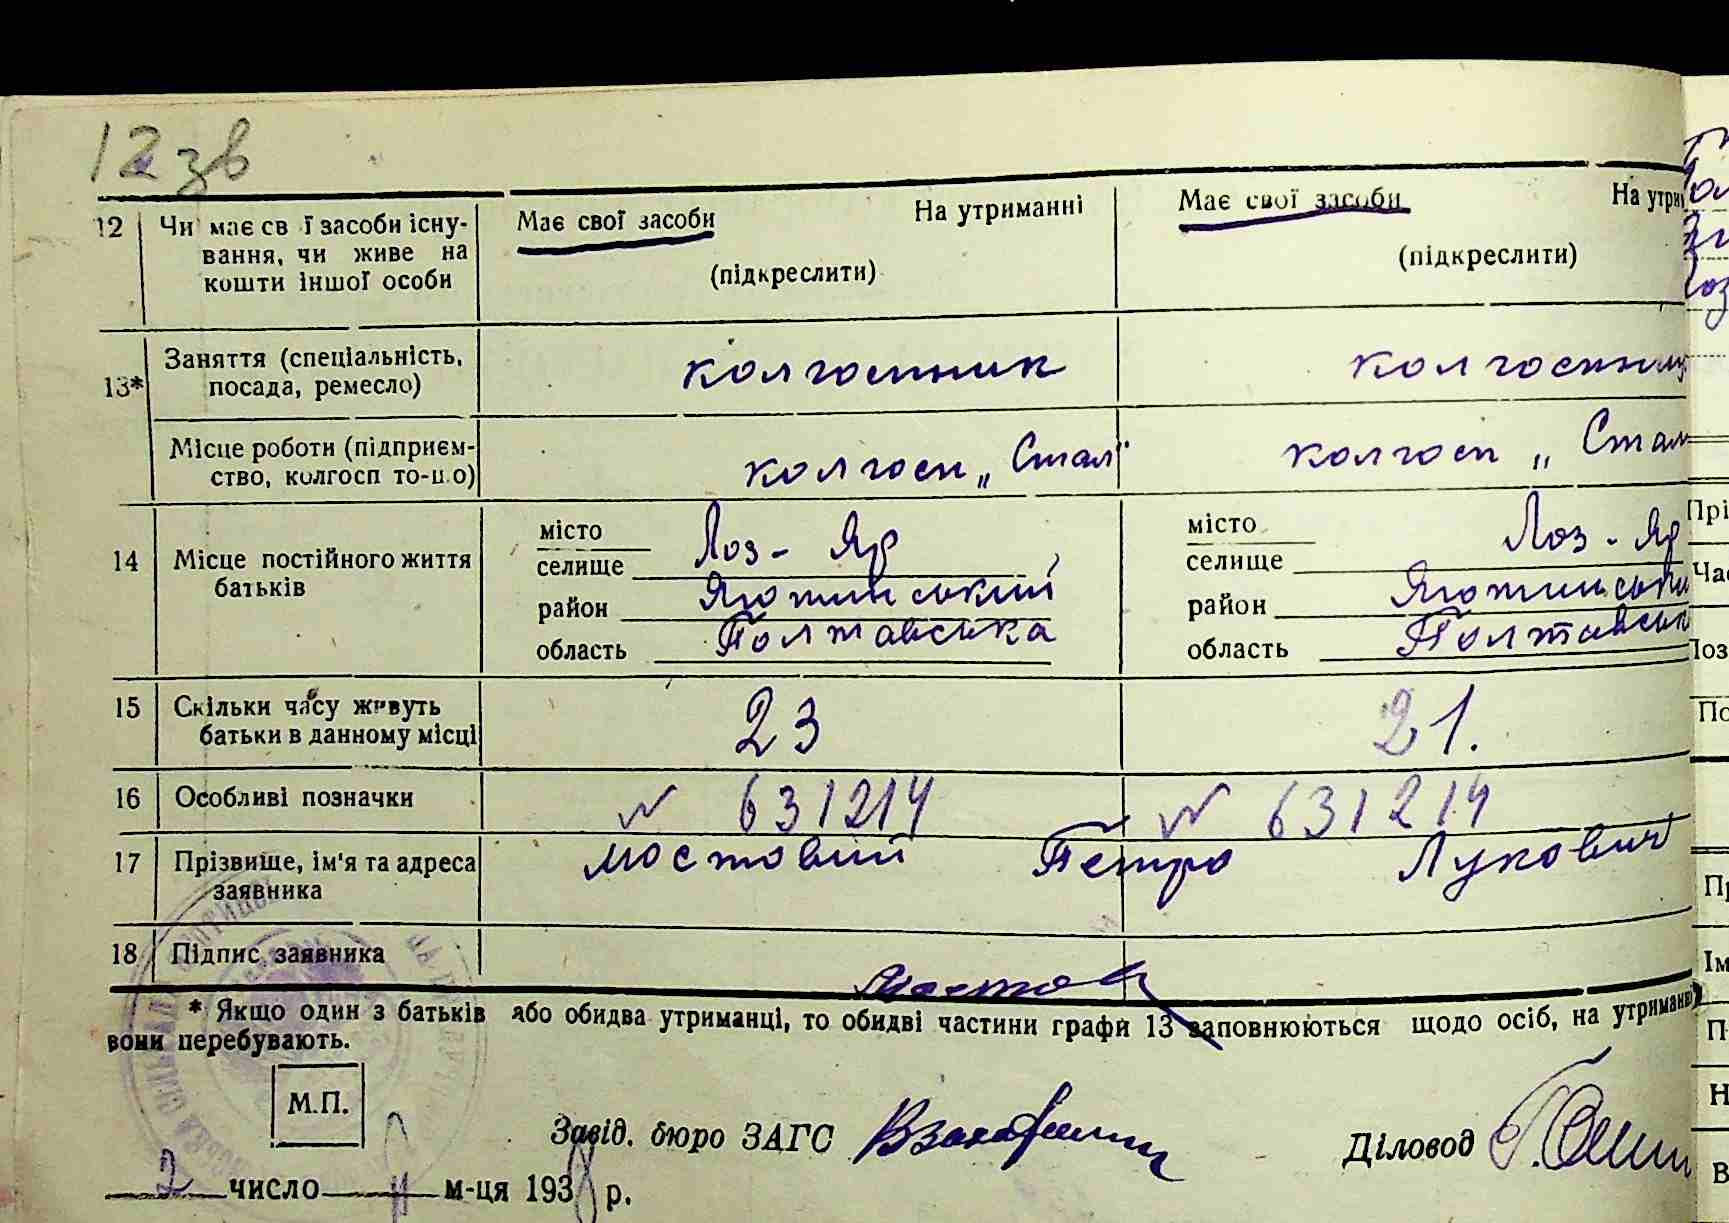 12 зв
12 Чи має св ї засоби існу-
вання, чи живе на
кошти іншої особи
Має свої засоби На утриманні
(підкреслити)
Має свої засоби На утри
(підкреслити)
13* Заняття (спеціальність,
посада, ремесло)
колгоспник
колгоспниц
Місце роботи (підприєм-
ство, колгосп то-що)
колгосп „Стал"
колгосп „Стал
14 Місце постійного життя
батьків
місто
селище Лоз-Яр
район Яготинський
область Полтавська
місто
селище Лоз-Яр
район Яготинськи
область Полтавськ
15 Скільки часу живуть
батьки в данному місці
23
21.
16 Особливі позначки
№ 631214
№ 631214
17 Прізвище, ім'я та адреса
заявника
Мостовий Петро Лукович
18 Підпис заявника
* Якщо один з батьків або обидва утриманці, то обидві частини графи 13 заповнюються щодо осіб, на утриманні
вони перебувають.
М.П.
Завід. бюро ЗАГС
Діловод
2 число м-ця 1938 р.